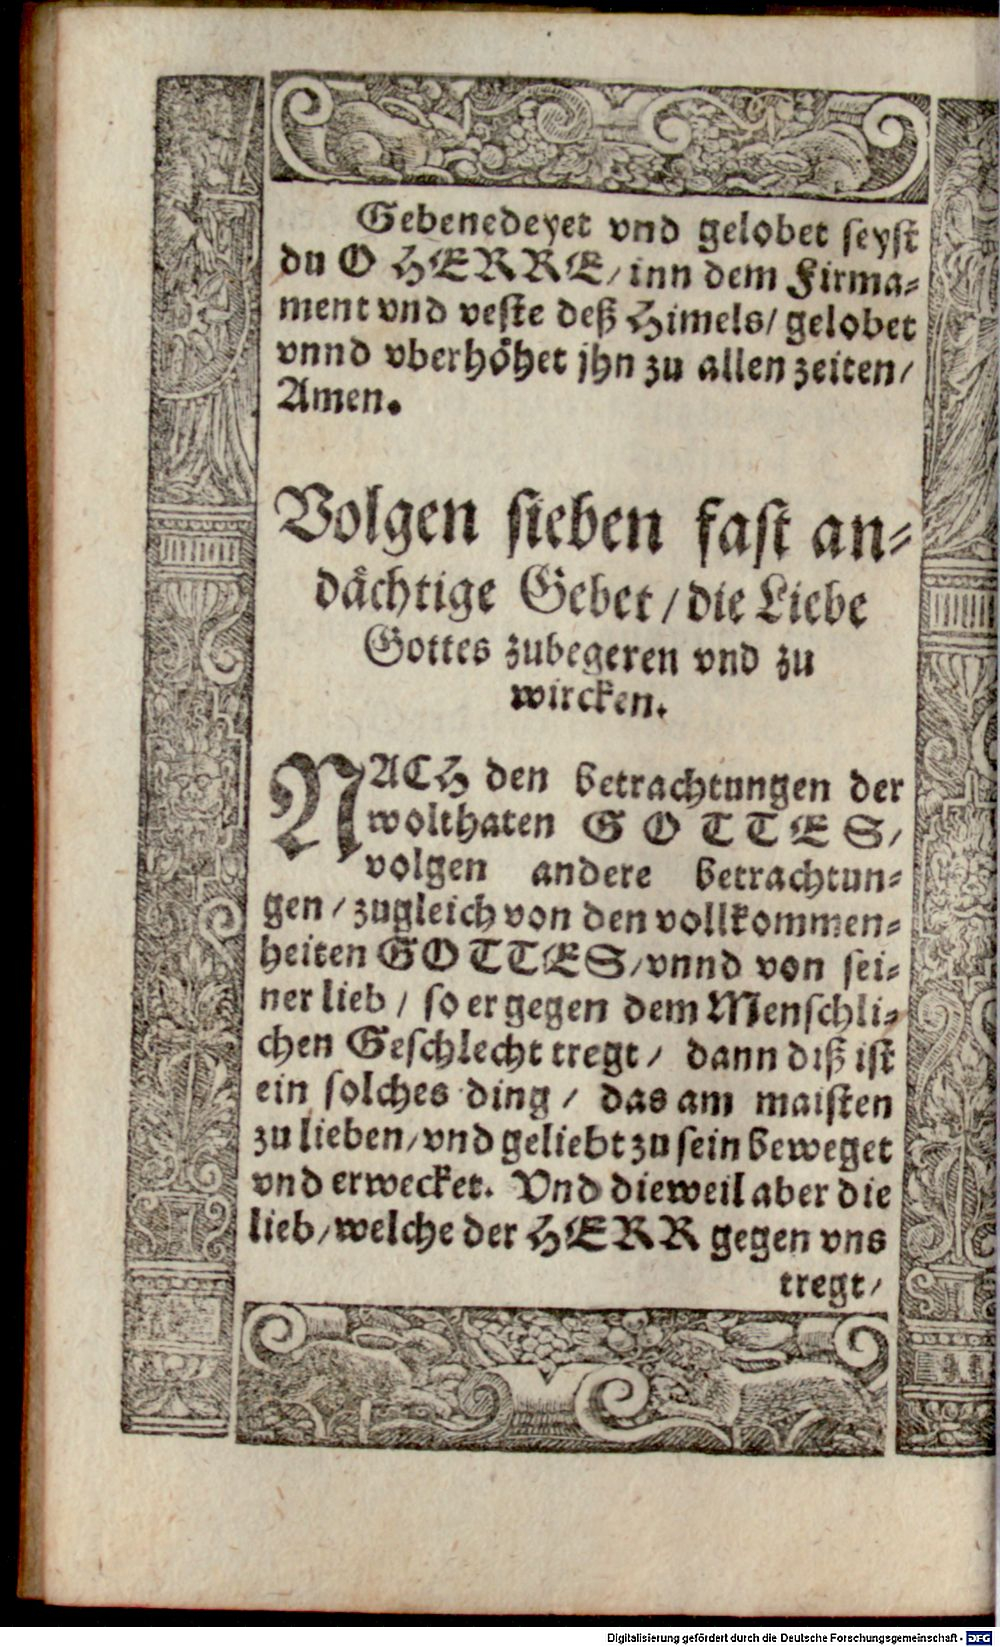 Gebenedeyet vnd gelobet seyst
du O HERRE/ inn dem Firma-
ment vnd veste deß Himels/ gelobet
vnnd vberhöhet jhn zu allen zeiten/
Amen.
Volgen sieben fast an-
dächtige Gebet/ die Liebe
Gottes zubegeren vnd zu
wircken.
NACH den betrachtungen der
wolthaten GOTTES/
volgen andere betrachtun-
gen/ zugleich von den vollkommen-
heiten GOTTES/ vnnd von sei-
ner lieb/ so er gegen dem Menschli-
chen Geschlecht tregt/ dann diß ist
ein solches ding/ das am maisten
zu lieben/ vnd geliebt zu sein beweget
vnd erwecket. Vnd dieweil aber die
lieb/ welche der HERR gegen vns
tregt/
Digitalisierung gefördert durch die Deutsche Forschungsgemeinschaft - DFG